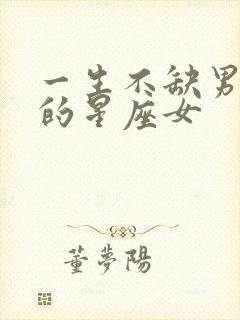 一生不缺男
的星座女
董夢陽